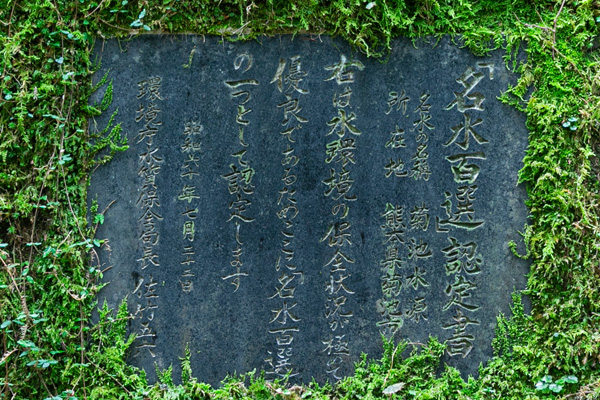 「名水百選」認定書
名水の名称 菊池水源
所在地 熊本県菊池市
右は水環境の保全状況が極めて
優良であるためここに「名水百選
」の一つとして認定します
昭和六十年七月二十二日
環境庁水質保全局長 佐竹五六